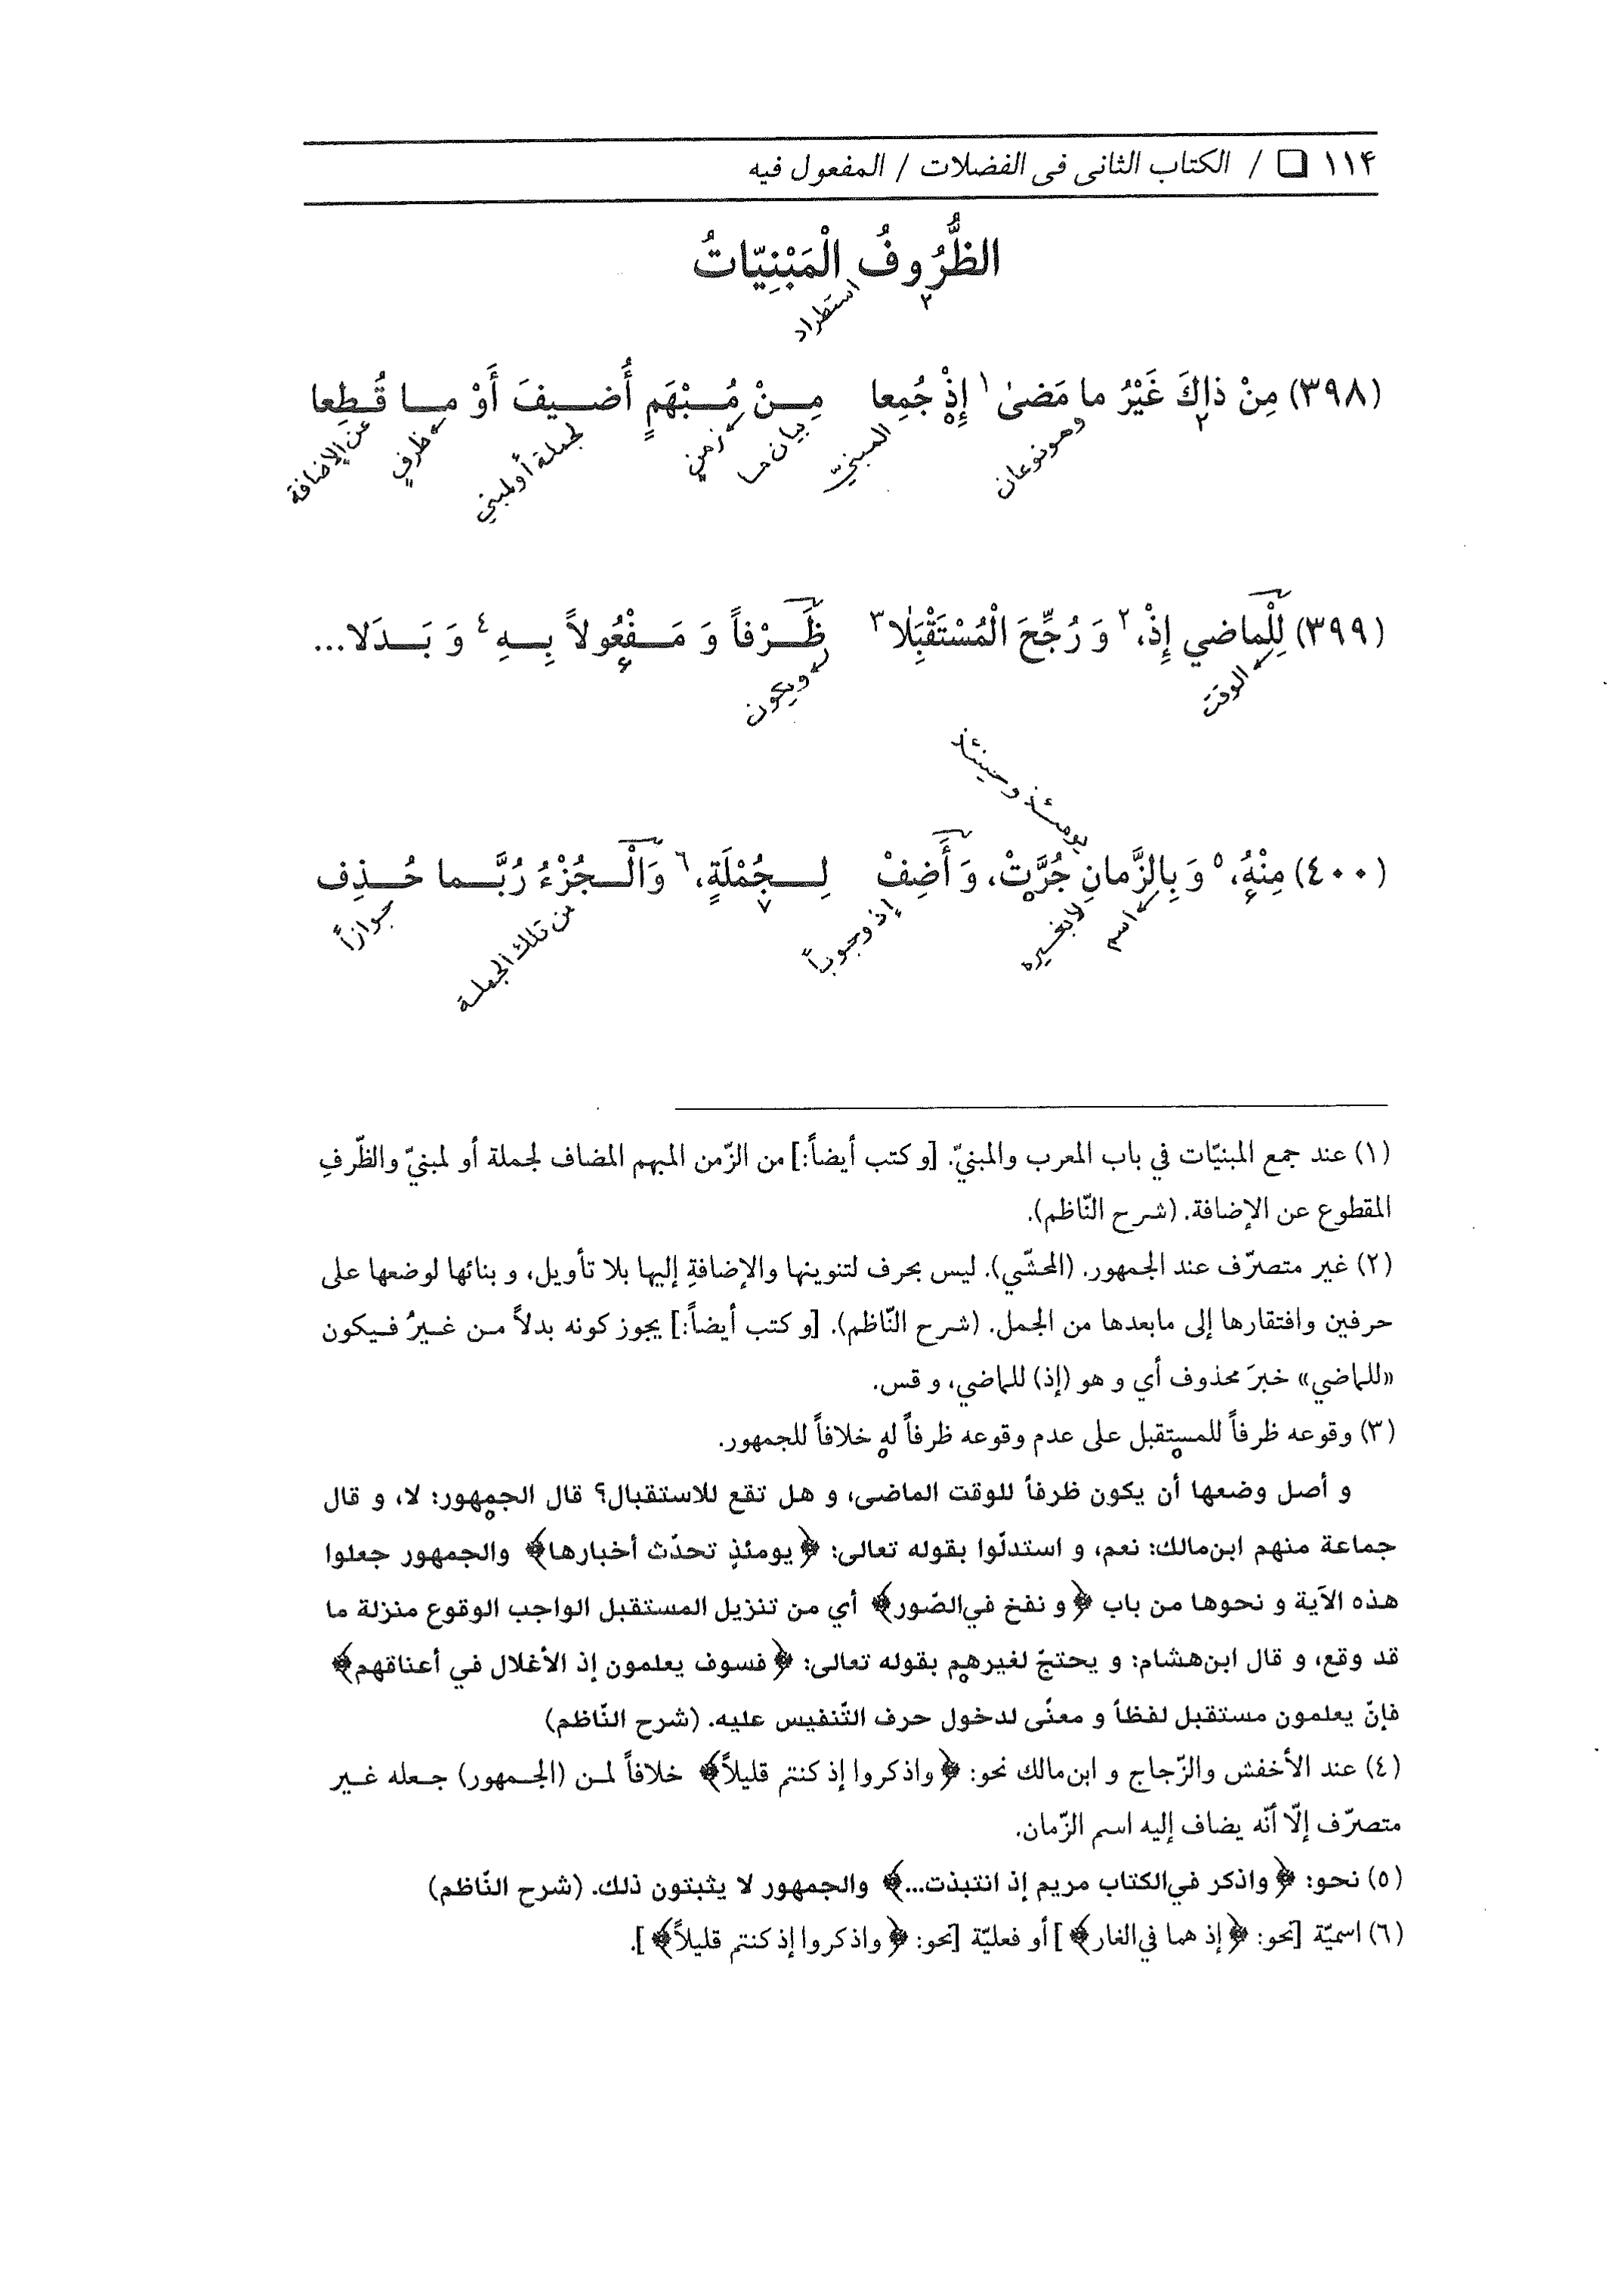 ١١۴ ❏ / الكتاب الثانى فى الفضلات / المفعول فيه
الظُّرُوفُ الْمَبْنِيّاتُ
٢
استطراد
(٣٩٨) مِنْ ذاكَ غَيْرُ ما مَضىٰ ١ إِذْ جُمِعا    مِـنْ مُـبْهَمٍ أُضـيفَ أَوْ مـا قُـطِعا
٢ وهو نوعان المبنيّ بيان ما زمنٍ لجملة أو لمبني ظرفٍ عن الإضافة
(٣٩٩) لِلْماضي إِذْ، ٢ وَ رُجِّحَ الْمُسْتَقْبَلا ٣    ظَـرْفاً وَ مَـفْعُولاً بِـهِ ٤ وَ بَـدَلا...
الوقت ويكون
يومئذ وحينئذ
(٤٠٠) مِنْهُ، ٥ وَ بِالزَّمانِ جُرَّتْ، وَ أَضِفْ    لِـجُمْلَةٍ، ٦ وَالْـجُزْءُ رُبَّـما حُـذِف
اسم لا بغيره إذ وجوباً ٧ من تلك الجملة جوازاً
(١) عند جمع المبنيّات في باب المعرب والمبنيّ. [و كتب أيضاً:] من الزّمن المبهم المضاف لجملة أو لمبنيّ والظّرفِ
المقطوع عن الإضافة. (شرح النّاظم).
(٢) غير متصرّف عند الجمهور. (المحشّي). ليس بحرف لتنوينها والإضافةِ إليها بلا تأويل، و بنائها لوضعها على
حرفين وافتقارها إلى مابعدها من الجمل. (شرح النّاظم). [و كتب أيضاً:] يجوز كونه بدلاً من غيرُ فيكون
«للماضي» خبرَ محذوف أي و هو (إذ) للماضي، و قس.
(٣) وقوعه ظرفاً للمستقبل على عدم وقوعه ظرفاً له خلافاً للجمهور.
و أصل وضعها أن يكون ظرفاً للوقت الماضى، و هل تقع للاستقبال؟ قال الجمهور: لا، و قال
جماعة منهم ابن‌مالك: نعم، و استدلّوا بقوله تعالى: ﴿يومئذٍ تحدّث أخبارها﴾ والجمهور جعلوا
هذه الآية و نحوها من باب ﴿و نفخ في‌الصّور﴾ أي من تنزيل المستقبل الواجب الوقوع منزلة ما
قد وقع، و قال ابن‌هشام: و يحتجّ لغيرهم بقوله تعالى: ﴿فسوف يعلمون إذ الأغلال في أعناقهم﴾
فإنّ يعلمون مستقبل لفظاً و معنًى لدخول حرف التّنفيس عليه. (شرح النّاظم)
(٤) عند الأخفش والزّجاج و ابن‌مالك نحو: ﴿واذكروا إذ كنتم قليلاً﴾ خلافاً لمن (الجمهور) جعله غير
متصرّف إلّا أنّه يضاف إليه اسم الزّمان.
(٥) نحو: ﴿واذكر في‌الكتاب مريم إذ انتبذت...﴾ والجمهور لا يثبتون ذلك. (شرح النّاظم)
(٦) اسميّة [نحو: ﴿إذ هما في‌الغار﴾] أو فعليّة [نحو: ﴿واذكروا إذ كنتم قليلاً﴾].